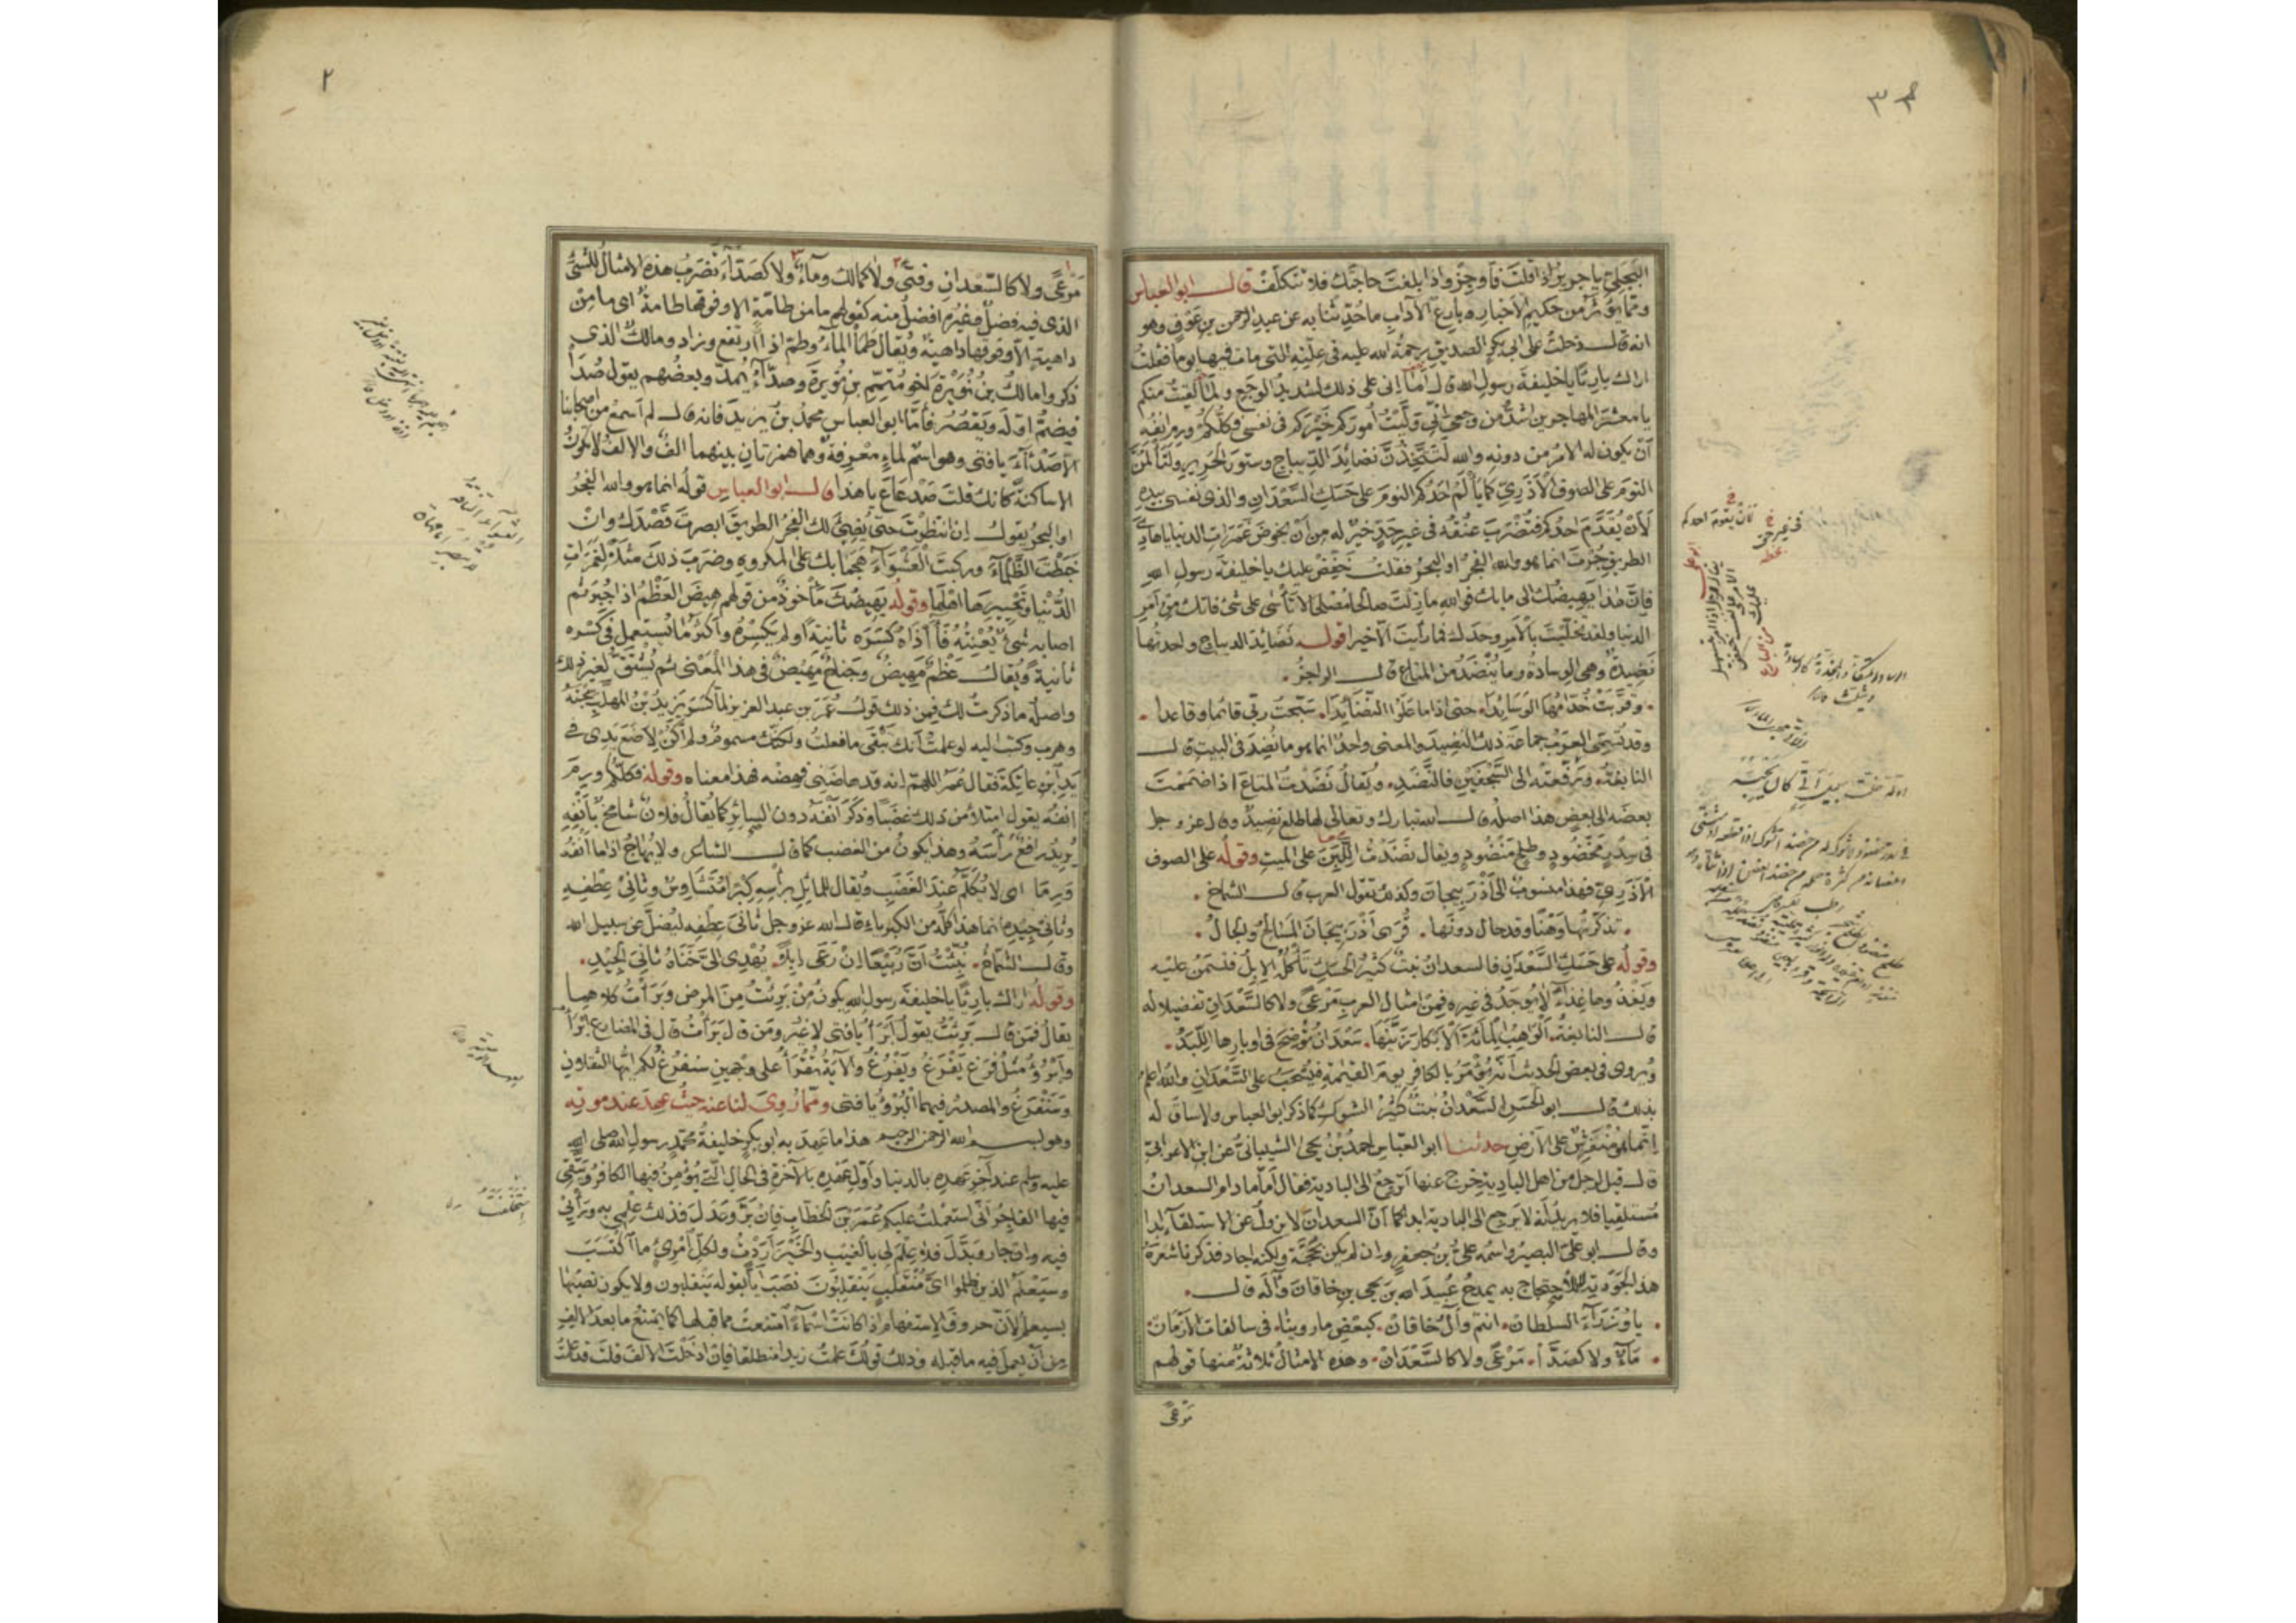 البَجَلِيّ يا جرير اذا قلتَ فَأَوجِزْ واذا بلغتَ حاجتَك فلا تتكلّفْ قال ابو العباس
وممّا يُؤثَرُ من حكيم الاخبار وبارع الآداب ما حُدّثنا به عن عبد الرحمن بن عَوفٍ وهو
انه قال دخلتُ على ابى بكرٍ الصديق رحمةُ الله عليه فى عِلّتِه التى مات فيها يوما فقلتُ
اراك بارِئًا يا خليفةَ رسول الله قال أمَا إنى على ذلك لشديدُ الوجَع ولَمَا لقيتُ منكم
يا معشرَ المهاجرين اشدُّ من وجعى انّى ولّيتُ اُمورَكم خَيرَكم فى نفسى فكلُّكم ورِمَ انفُه
أنْ يكونَ له الامرُ من دونِه والله لَتَتَّخِذُنَّ نضائِدَ الدِّيباجِ وستورَ الحَرِير ولَتَأْلَمُنَّ
النومَ على الصوفِ الأَذْرِيّ كما يَأْلَمُ احدُكم النومَ على حَسَكِ السَّعْدانِ والذى نفسى بيده
لَأَنْ يُقَدَّمَ احدُكم فتُضْرَبَ عُنُقُه فى غيرِ حَدٍّ خيرٌ له من أنْ يخوضَ غَمَراتِ الدنيا يا هادِيَ
الطريقِ جُرْتَ انما هو والله الفجرُ او البحرُ فقلتُ خَفِّضْ عليك يا خليفةَ رسول الله
فإنّ هذا يَهِيضُك الى ما بك فوالله ما زِلتَ صالحًا مُصْلِحًا لا تأسَى على شئٍ فاتك من أمرِ
الدنيا ولقد تخلّيتَ بالأمرِ وحدَك فما رأيتَ الّا خيرا قوله نَضائِدَ الديباج واحدتُها
نَضِيدةٌ وهى الوِسادةُ وما يُنْضَدُ من المتاعِ قال الراجزُ .
. وقرَّبَتْ خُدّامُها الوَسَائِدَا . حتى اذا ما عَلَوُا النّضَائِدَا . سَبّحتُ ربّى قائما وقاعدا .
وقد تُسمّى العربُ جماعةَ ذلك النضِيدَ والمعنى واحدٌ انما هو ما نُضِدَ فى البيت قال
النابغةُ . ورَفَّعَتْه الى السَّجْفَيْنِ فالنَّضَدِ . ويُقالُ نَضَدْتُ المتاعَ اذا ضَمَمْتَ
بعضَه الى بعضٍ هذا اصلُه قال الله تبارك وتعالى لها طلع نضِيدٌ وقال عز وجل
فى سِدْرٍ مَخْضُودٍ وطلحٍ مَنْضُودٍ ويقال نَضَدْتُ اللَّبِنَ على الميتِ وقولُه على الصوف
الأَذْرِيّ فهذا منسوبٌ الى أَذْرَبِيجانَ وكذلك تقول العرب قال الشماخ .
. تذكّرتُها وَهْنًا وقد حال دونَها . قُرَى أَذْرَبِيجَانَ المَسَالِحُ والجالُ .
وقولُه على حَسَكِ السَّعْدَانِ فالسعدانُ نبتٌ كثيرُ الحَسَكِ تَأْكُلُهُ الإبلُ فتَسْمَنُ عليه
ويَغْذُوها غِذاءً لا يُوجَدُ فى غيره فمِنْ امثالِ العربِ مَرْعًى ولا كالسَّعْدانِ تفضيلا له
قال النابغةُ . اَلْوَاهِبُ المِائةَ الأَبْكارَ زَيَّنَها . سَعْدَانُ تُوضِحَ فى اوبارِها اللِّبَدِ .
ويُروى فى بعض الحديث أنّه يُؤمَرُ بالكافر يومَ القيٰمةِ فيُسْحَبُ على السَّعْدَانِ والله اعلمُ
بذلك قال ابو الحَسَنِ السَّعْدانُ نبتٌ كثيرُ الشوكِ كما ذكر ابو العباس ولا ساقَ له
انّما هو مُنْفَرِشٌ على الأرضِ حدثنا ابو العبّاس احمدُ بْنُ يحيىٰ الشيبانىّ عن ابن الاعرابىّ
قال قيل لرجل من اهل البادية وخرج عنها أترجعُ الى البادية فقال أمّا ما دام السعدانُ
مُستلقِيا فلا يريدُ أنّه لا يَرجع الى البادية ابدا كما أنّ السعدان لا يزول عن الاستلقآء ابدا
وقال ابو علىّ البصيرُ واسمُه علىُّ بن جعفرٍ وان لم يكن بحُجَّةٍ ولكنه اجاد فذكرنا شعرَهُ
هذا لجَوْدتِه لا للاحتجاج به يمدحُ عُبيدَ الله بن يحيى بن خاقانَ وآلَه قال .
. يا وُزَرَآءَ السُلطانِ . انتم وآلُ خاقان . كبعضِ ما روينا . فى سالفات الأزمَان .
. مَآءٌ ولا كصَدَّآ . مَرْعًى ولا كالسَّعْدَانِ . وهذه الامثالُ ثلاثةٌ منها قولهم
مَرْعًى
مَرْعًى ولا كالسَّعْدانِ وفتًى ولا كمالك وماءٌ ولا كصَدّآءَ تُضرَبُ هذه الامثالُ للشئِ
الذى فيه فضلٌ وغيرُه افضلُ منه كقولهم ما من طامّةٍ الا وفوقها طامةٌ اى ما من
داهيةٍ الّا وفوقها داهيةٌ ويُقال طَمَا الماءُ وطمّ اذا ارتفع وزاد ومالكٌ الذى
ذكروا مالكُ بن نُوَيْرَةَ اخو مُتَمِّمِ بن نُوَيرةَ وصدّآءُ يُمدّ وبعضُهم يقول صُدَّا
فيضُمّ اوّلَه ويَقْصُرُ فأمّا ابو العباس محمدُ بنُ يزيدَ فانه قال لم أسمع من اصحابنا
الا صَدْآءَ يا فتى وهو اسمٌ لماءٍ معْرِفةٌ وهما همزتان بينهما الفٌ والالفُ لا تكونُ
الا ساكنةً كانك قلتَ صَدْعَاعَ يا هذا قال ابو العباس قولُه انما هو والله الفجرُ
او البحرُ يقول إنِ انتظرتَ حتى يُضِئَ لك الفجرُ الطريقَ ابصرتَ قَصْدَك وانْ
خَبَطْتَ الظَّلْمآءَ وركبتَ العَشْوَآءَ هَجَمَا بك على المكروهِ وضرَبَ ذلك مثلًا لغَمَراتِ
الدُّنيا وتَحْيِيرِها اهْلَها وقولُه يَهِيضُكَ مأخوذٌ من قولهم هِيضَ العَظْمُ اذا جُبِرَ ثم
اصابه شئٌ يُعْنِتُهُ فَآذَاهُ كَسَرَه ثانيةً او لم يَكسِرْه واكثرُ ما تُستعمل فى كَسْرِه
ثانيةً ويُقال عَظْمٌ مَهِيضٌ وجَناحٌ مَهِيضٌ فى هذا المَعْنى ثم يُشْتَقُّ لغير ذلك
واصلُه ما ذكرتُ لك فمن ذلك قولُ عُمَرَ بن عبد العزيز لمّا كَسَرَ يزيدُ بْنُ المهلبِ سِجْنَهُ
وهرب وكتب اليه لو علمتُ أنّك تَبْقَى ما فعلتُ ولكنّك مسمومٌ ولم أكُنْ لِأضَعَ يَدِى فى
يَدِ ابْنِ عاتِكةَ فقال عُمَرُ اللهمّ انه قد هاضنى فهِضْه فهذا معناه وقولُه فكلُّكم ورِمَ
انفُه يقول امتلأ من ذلك غضَبًا وذَكَرَ انْفَه دون السائِرِ كما يُقالُ فلانٌ شامخٌ بأنْفِهِ
يُريدُ رافعٌ رأسَه وهذا يكونُ من الغضب كما قال الشاعر ولا يُهاجُ اذا ما أنفُه
وَرِمَا اى لا يُكلَّم عندَ الغَضَبِ ويُقال للمائلِ برأسِهِ كِبْرًا مُتَشَاوِسٌ وثانِيْ عِطْفِهِ
وثانِى جِيدِه انما هذا كلُّه من الكِبرِياءِ قال الله عز وجل ثانِىَ عِطْفِه ليُضلَّ عن سبيل الله
وقال الشماخُ . نُبِّئْتُ أنّ رُبَيْعًا إنْ رَعَى إبِلًا . يُهْدِى الىَّ خَنَاهُ ثانِيَ الجِيدِ .
وقولُه اراك بارِئًا يا خليفةَ رسولِ الله يكونُ مِنْ بَرِئتُ مِن المرض وبَرَأتُ كلاهما
يقالُ فمَن قال بَرِئتُ يقول أبْرَأُ يا فتى لا غيرُ ومَن قال بَرَأْتُ قال فى المضارع أبْرَأُ
وأَبْرُؤُ مثلُ فَرَغَ يَفْرَغُ ويَفْرُغُ والآيةُ تُقْرَأُ على وجهينِ سنَفْرُغُ لكم ايّها الثقلانِ
وسَنَفْرَغُ والمصدرُ فيهما البُرْءُ يا فتى وممّا رُوِيَ لنا عنه حيثُ عهِدَ عند موتِه
وهو بسم الله الرحمن الرحيم هذا ما عَهِدَ به ابو بكرٍ خليفةُ محمّدٍ رسولِ الله صلى الله
عليه وسلم عند آخرِ عَهدِه بالدنيا واَوّلِ عهدِه بالآخرةِ فى الحالِ الّتى يُؤمِنُ فيها الكافرُ ويَتّقِى
فيها الفاجرُ انّى استعملتُ عليكم عُمَرَ بنَ الخطّابِ فإنْ بَرَّ وعَدَلَ فذلك عِلْمِى به ورَأْيِى
فيه وان جار وبَدَّلَ فلا عِلْمَ لى بالغَيْبِ والخَيْرَ أَرَدْتُ ولكلِّ امْرِئٍ ما اكْتَسَبَ
وسَيَعْلَمُ الذين ظلموا اىَّ مُنقَلبٍ يَنقلِبُونَ نصَبَ أيّا بقوله ينقلبون ولا يكون نصبُها
بسيعلم لأنّ حروفَ الاستفهام اذا كانَتْ اسْمَآءً امتنعتْ مما قبلها كما يمتنعُ ما بعدَ الالفِ
من أن يعملَ فيه ما قبلَه وذلك قولُك علمتُ زيدا منطلقا فإن ادخلتَ الالفَ قلتَ قد علمتُ